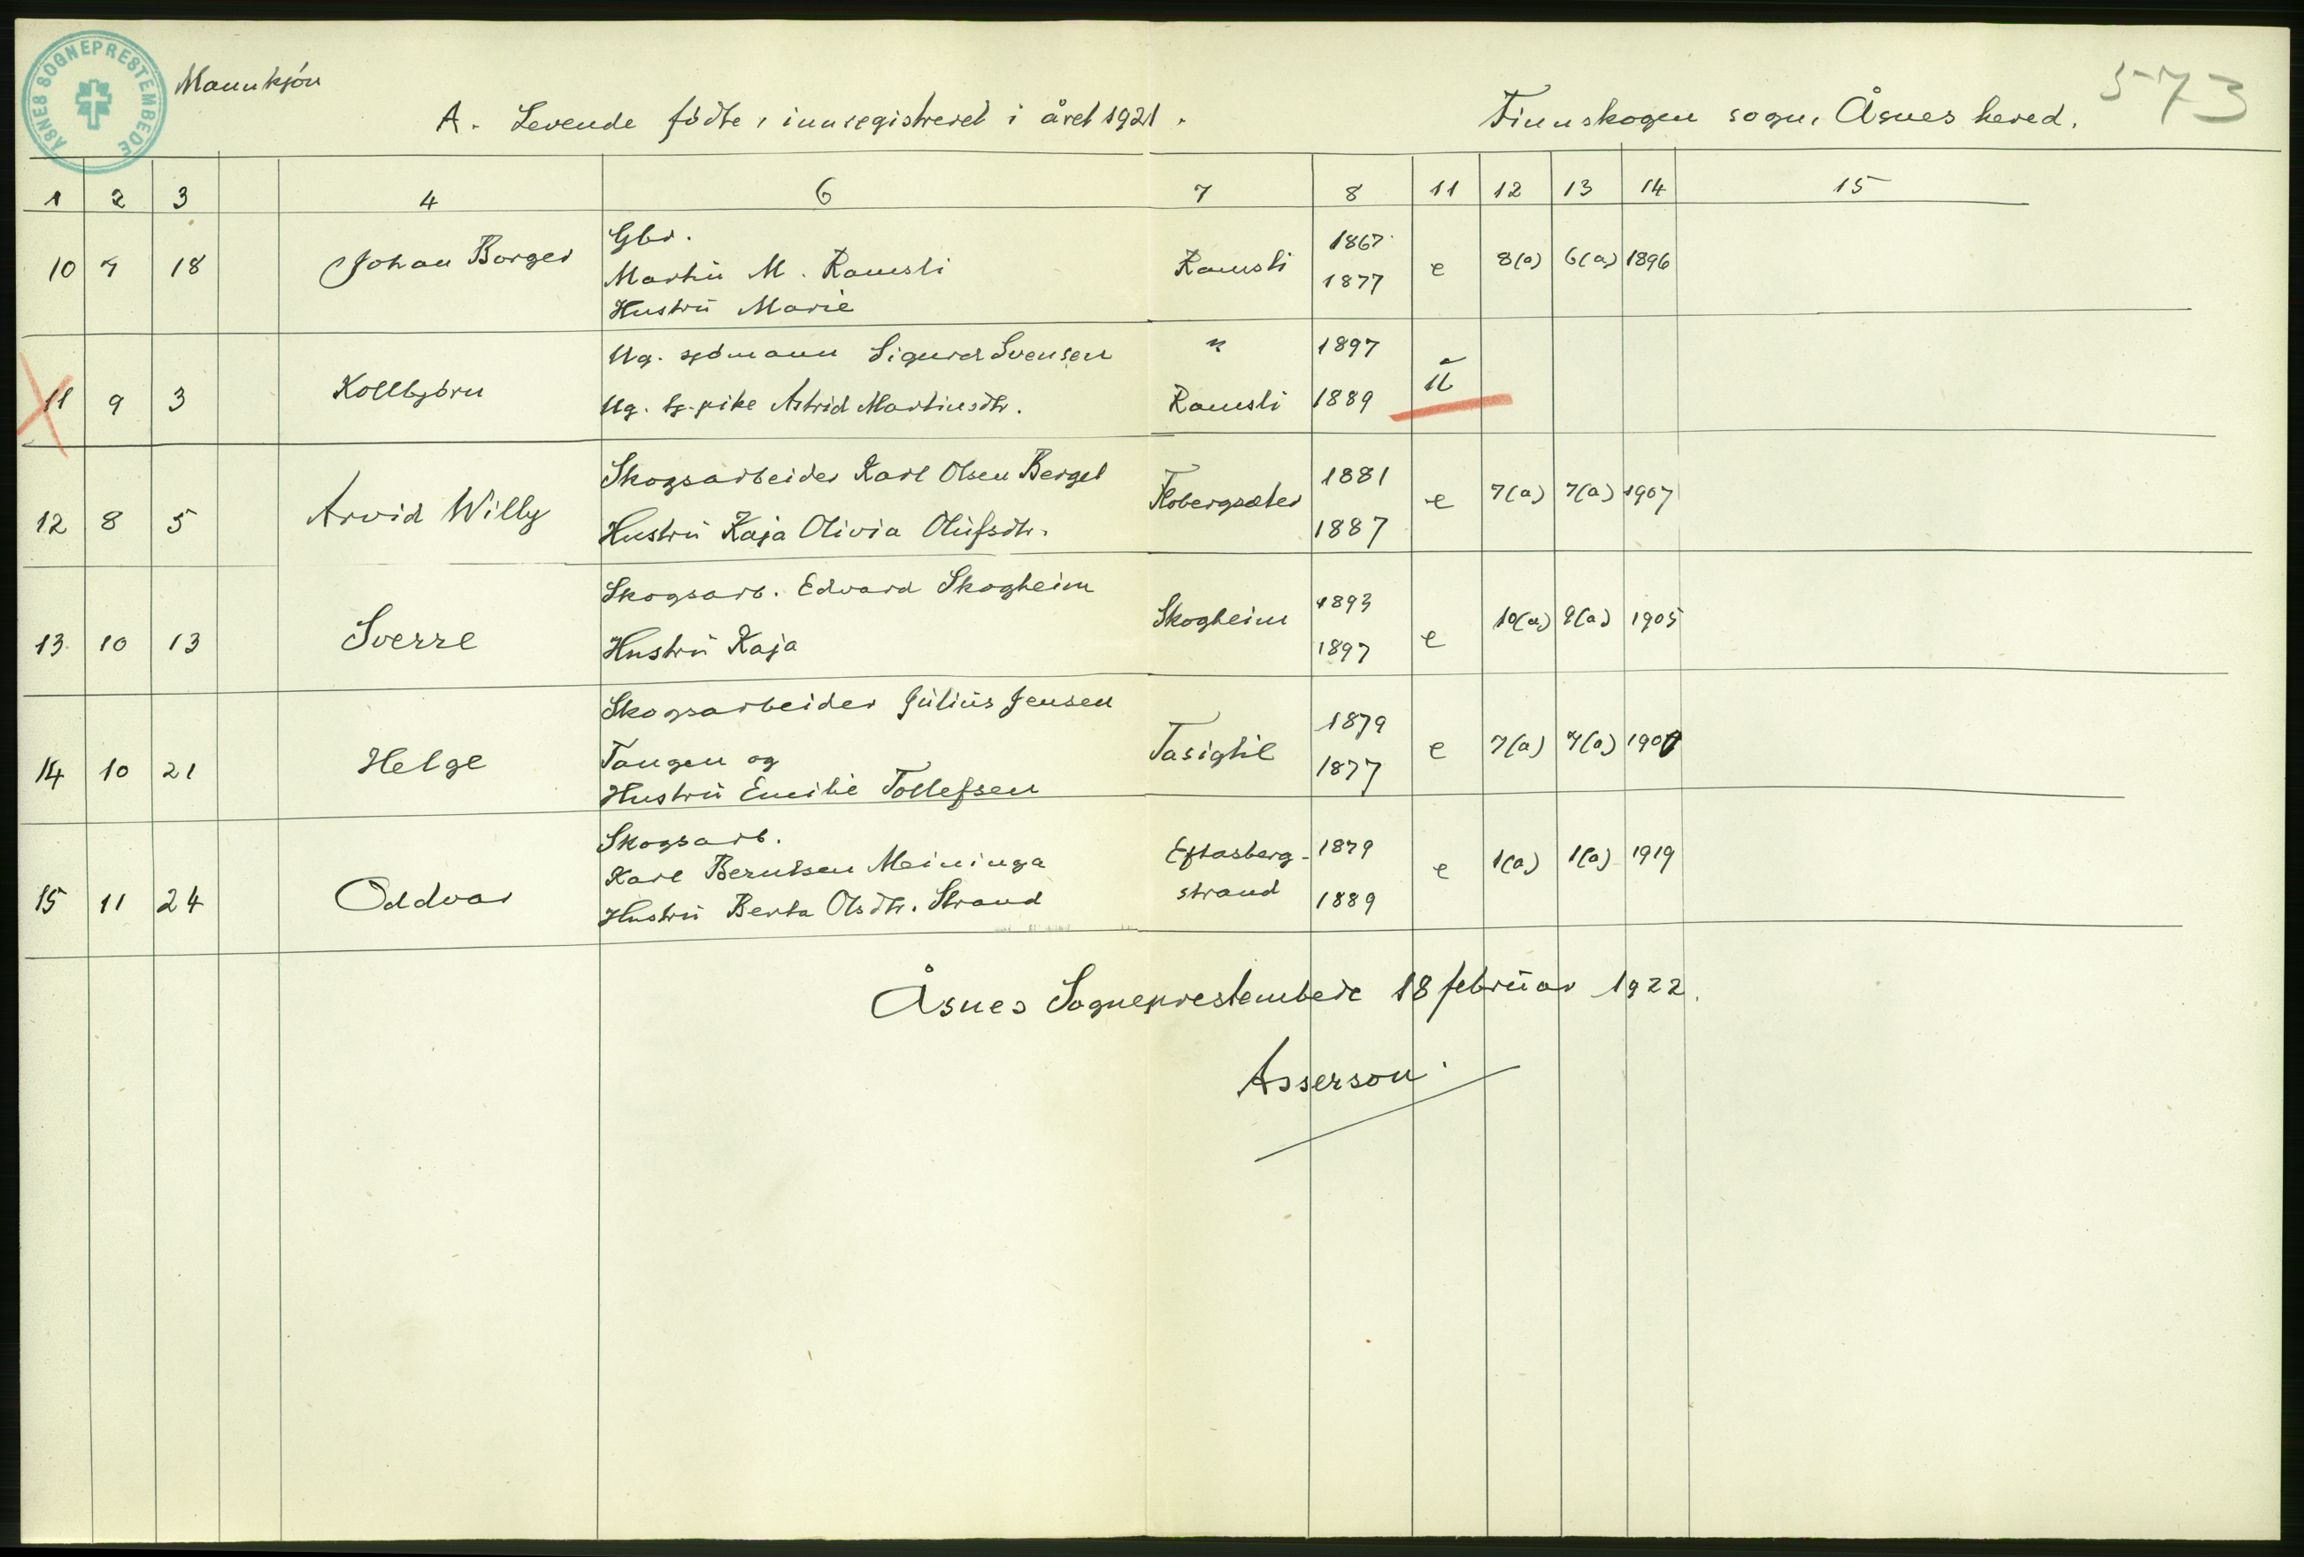 ÅSNES SOGNEPRESTEMBEDE
Mannkjøn
573
A. Levende fødte, innregistreret i året 1921.
Finnskogen sogn, Åsnes hered.
1 2 3 4 6 7 8 11 12 13 14 15
Gbr.
10 7 18 Johan Borger Martin M. Ramsli Ramsli 1867 e 8(a) 6(a) 1896
Hustrü Marie 1877
Ug. sjømann Sigurd Svensen " 1897
11 9 3 Kollbjørn Ug. tj. pike Astrid Martinsdtr. Ramsli 1889 ü
Skogsarbeider Karl Olsen Berget 1881
12 8 5 Arvid Willy Hustrü Kaja Olivia Olüfsdtr. Flobergsæter 1887 e 7(a) 7(a) 1907
Skogsarb. Edvard Skogheim Skogheim 1893
13 10 13 Sverre Hustrü Kaja 1897 e 10(a) 9(a) 1905
Skogsarbeider Jülius Jensen 1879
14 10 21 Helge Tangen og Tasighil 1877 e 7(a) 7(a)
Hustrü Emilie Tollefsen
Skogsarb.
Karl Berntsen Meininga Eftasberg- 1879
15 11 24 Oddvar Hustrü Berta Olsdtr. Strand strand 1889 e 1(a) 1(a) 1919
Åsnes Sogneprestembede 18 februar 1922.
Asserson.